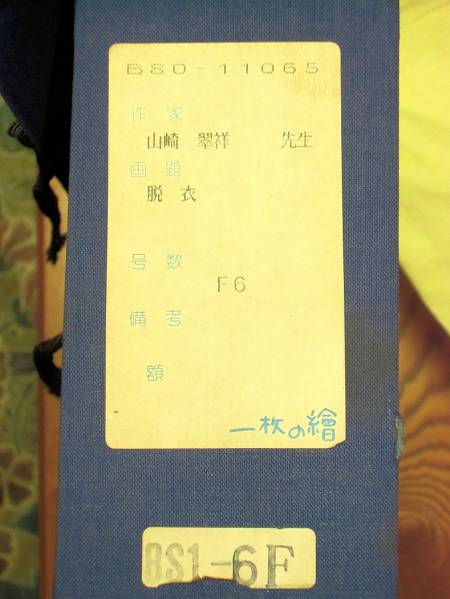 B80-11065
作家
山崎 翠祥 先生
画題
脱衣
号数
F6
備考
額
一枚の繪
BS1-6F